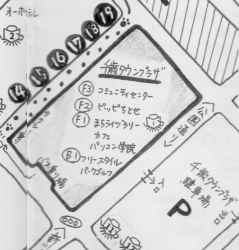 オーホンム
14 15 16 17 18 19
千歳タウンプラザ
F3 コミュニティセンター
F2 ピッピちとせ
F1 まちライブラリー
カフェ
パソコン学院
B1 フリースタイル
パークゴルフ
公園通り
入口
千歳タウンプラザ
駐車場
P
出口
バス乗り場